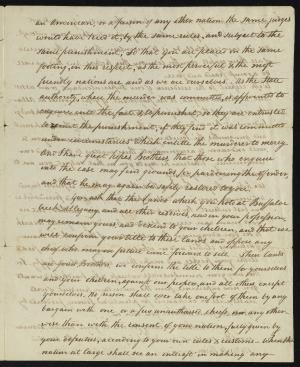 an American, or a person of any other nation the same judges
would have tried it, by the same rules, and subject to the
same punishment, So that you are placed on the same
footing, in this respect, as the most powerful & the most
friendly nations are and as we are ourselves. As the State
authority, where the murder was committed, is appointed to
enquire into the fact & to punish it, so they are entrusted
to the punishment, if they find it was committed
under circumstances which entitle the murderer to mercy.
And I have great hopes Brothers, that those who enquire
into the case may find grounds for pardoning the offender,
and that he may again be safely restored to you.
You ask that the lands which you hold at Buffalo
creek, Allegany, and all other reserves, now in your possession,
may remain yours, and descend to your children, and that we
will confirm your title to these lands and oppose any
that may in future come forward to sell. These lands
are yours Brothers, we confirm the title to them for yourselves
and your children, against our people, and all others except
yourselves. No person shall ever take one foot of them by any
bargain with one or a few unauthorised chiefs, nor any other
wise than with the consent of your nation, fairly given by
your deputies, according to your own rules & customs. When the
nation at large shall see an interest in making any